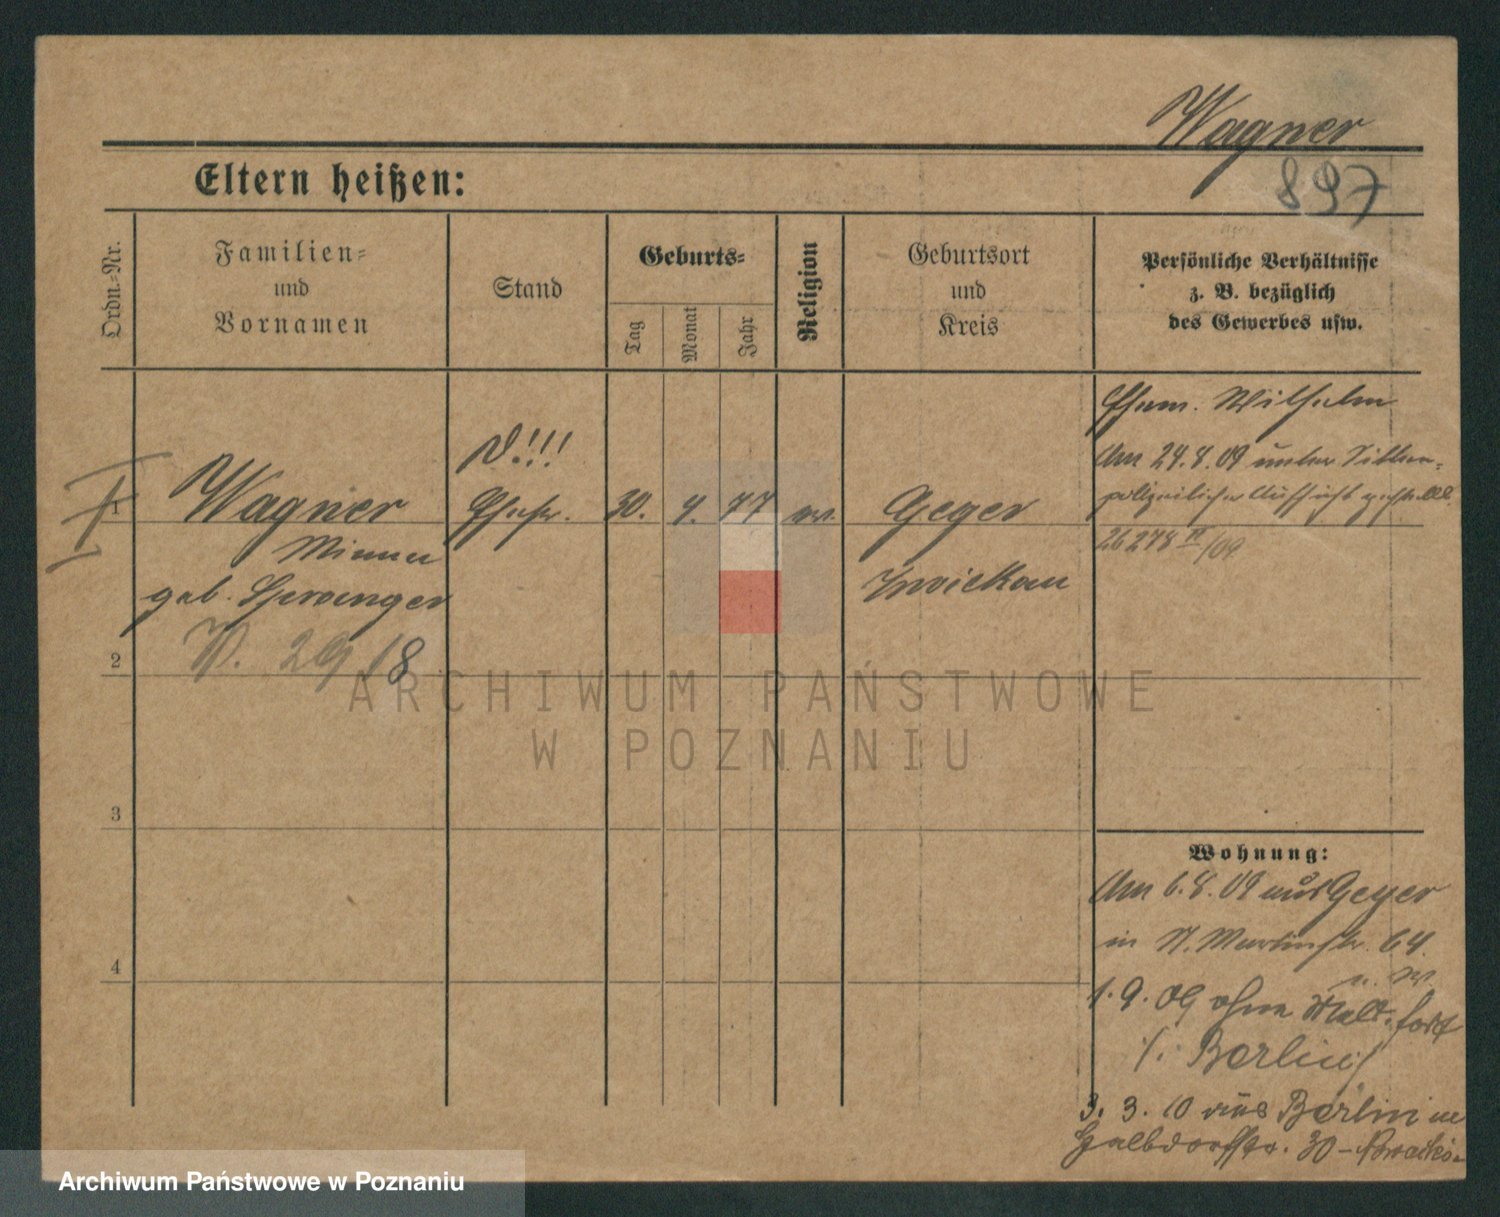 Wagner
897
Eltern heißen:
Ordn.-Nr.
Familien-
und
Vornamen
Stand
Geburts-
Tag
Monat
Jahr
Religion
Geburtsort
und
Kreis
Persönliche Verhältnisse
z. B. bezüglich
des Gewerbes usw.
1
Wagner
Minna
geb.
D!!!
Ehefr.
30. 4. 77
ev.
Geyer
Zwickau
Ehem. Wilhelm
Am 24.8.09 unter Sitten-
polizeilicher Aufsicht gestellt.
26278 II/09
29/8
2
3
4
Wohnung:
Am 6.8.09 aus Geyer
in St. Martinstr. 64.
1.9.09 ohne Meld. fort
/: Berlin :/
3. 3. 10 aus Berlin in
Halbdorfstr. 30 -
ARCHIWUM PAŃSTWOWE
W POZNANIU
Archiwum Państwowe w Poznaniu